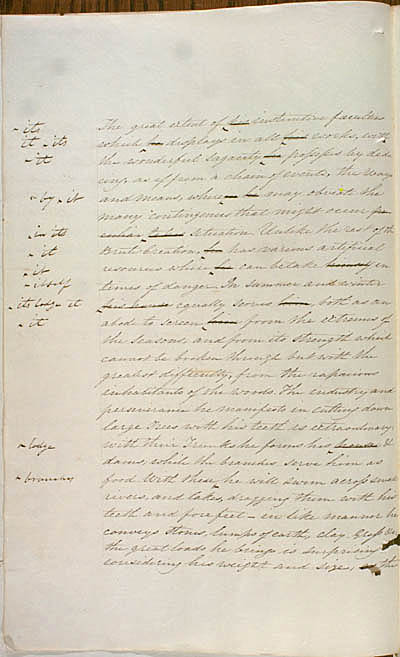 - its The great extent of his instinctive faculties
it - its which he displays in all his works, with
- it the wonderful sagacity he possesses by ded
ucing as if from a chain of events, the ways
- by - it and means, where he may obviate the
many contingencies that might occur
- in its situation. Unlike the rest of the
- it Brute Creation, he has various artificial
- it resources where he can betake himself in
- itself times of danger. In summer and winter
- its lodge - it his house equally serves him, both as an
- it abode to screen him from the extremes of
the seasons, and from its strength which
cannot be broken through but with the
greatest difficulty, from the rapacious
inhabitants of the woods. The industry and
perseverance he manifests in cutting down
large Trees with his teeth is extraordinary
- lodge with their Trunks he forms his house &
dams, while the branches serve him as
- branches food. With these he will swim across small
rivers and lakes, dragging them with his
teeth and forefeet - in like manner he
conveys stones, lumps of earth, clay, Grass &c
the great loads he brings is surprising
considering his weight and size, the